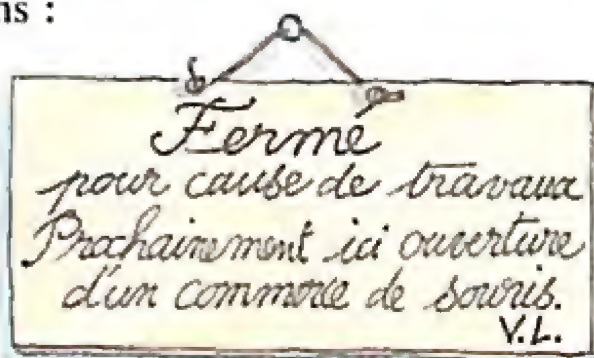 ns :
Fermé
pour cause de travaux
Prochainement ici ouverture
d'un commerce de souris.
V.L.